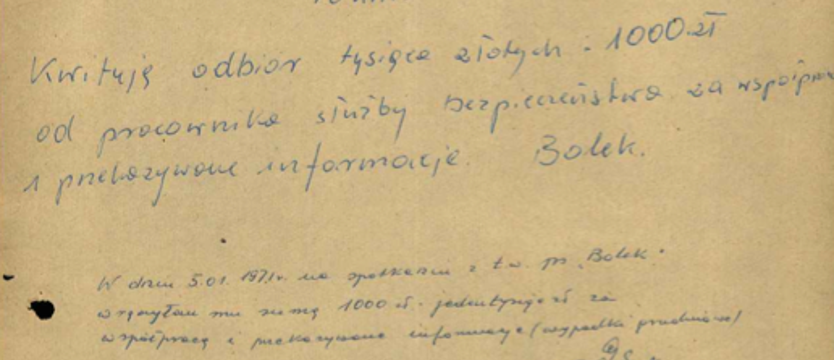 Kwituję odbiór tysiąca złotych - 1000 zł
od pracownika służby bezpieczeństwa za współprac
i przekazywane informacje. Bolek.
W dniu 5.01.1971r. na spotkaniu z t.w. ps. "Bolek"
wręczyłem mu sumę 1000 zł. jedentysiąc zł za
współpracę i przekazywane informacje (wypadki grudniowe)